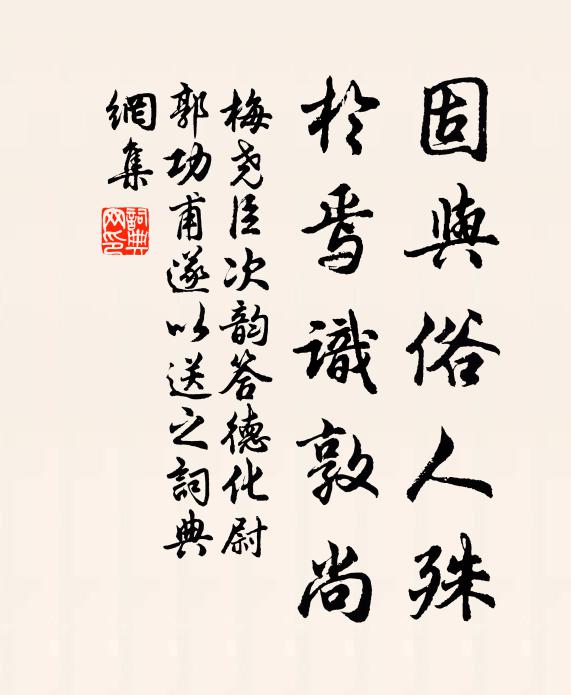 固與俗人殊
於焉識敦尚
梅尧臣次韵答德化尉
郭功甫遂以送之詞典
網集
詞典网印